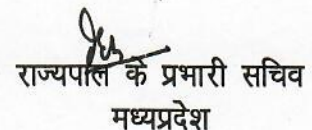 राज्यपाल के प्रभारी सचिव
मध्यप्रदेश